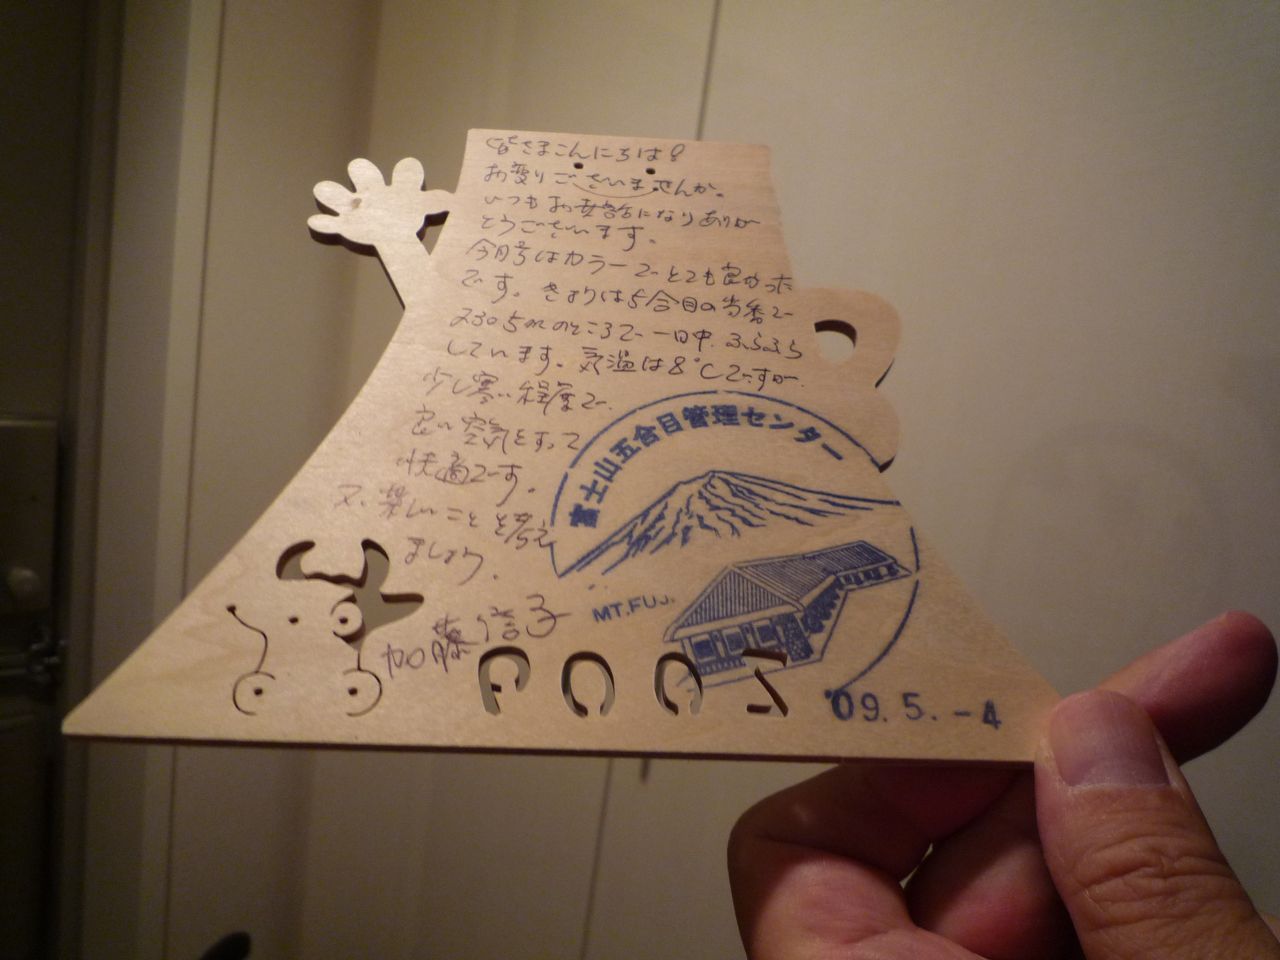 皆さまこんにちは!
お変りございませんか。
いつもお世話になりありが
とうございます。
今月号はカラーでとても良かった
です。きょうは5合目の当番で
2305mのところで一日中ふらふら
しています。気温は8℃ですが
少し寒い程度で
良い空気をすって
快適です。
又、楽しいことを考え
ましょう。
加藤信子
富士山五合目管理センター
MT.FUJI
2009
'09.5.-4